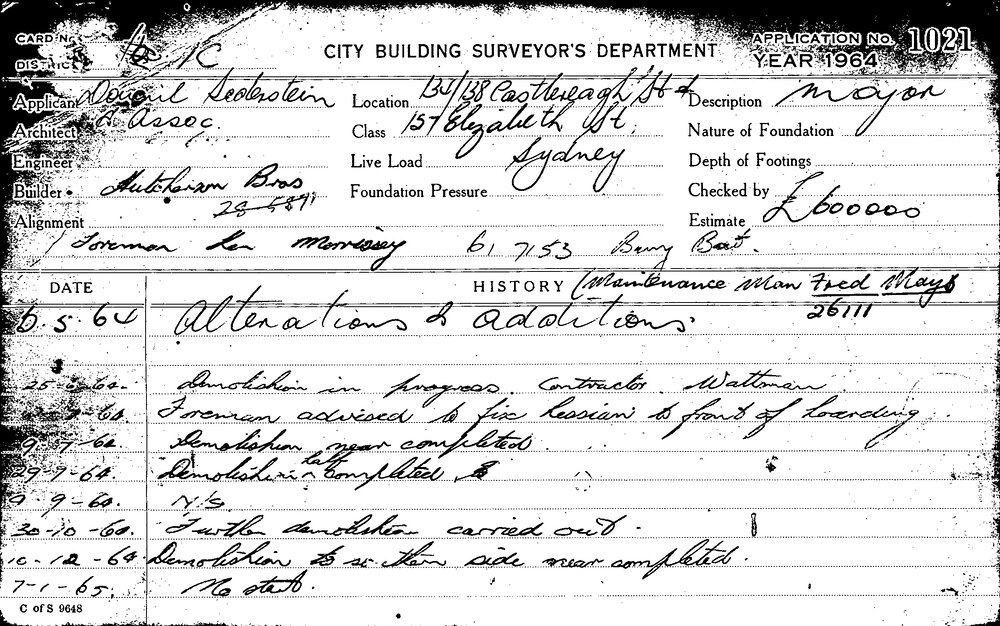 CARD No.
DISTRICT K
CITY BUILDING SURVEYOR'S DEPARTMENT
APPLICATION No. 1021
YEAR 1964
Applicant Donovil Sederstein
Architect & Assoc.
Engineer
Builder Hutcherson Bros
Alignment
Location Castlereagh St &
Class 157 Elizabeth St,
Live Load Sydney
Foundation Pressure
Description major
Nature of Foundation
Depth of Footings
Checked by
Estimate £600000
Foreman Ken Morrissey 61 7153
DATE
HISTORY (Maintenance Man Fred Mays
26111
6.5.64 Alterations & additions.
Demolishion in progress Contractor. Wattman
Foreman advised to fix hessian to front of hoarding.
9-7-64. Demolishion near completed.
29-7-64. Demolishion half completed
9-9-64. N/S.
30-10-64. Further demolishion carried out.
10-12-64. Demolishion to side near completed.
7-1-65. No start.
C of S 9648